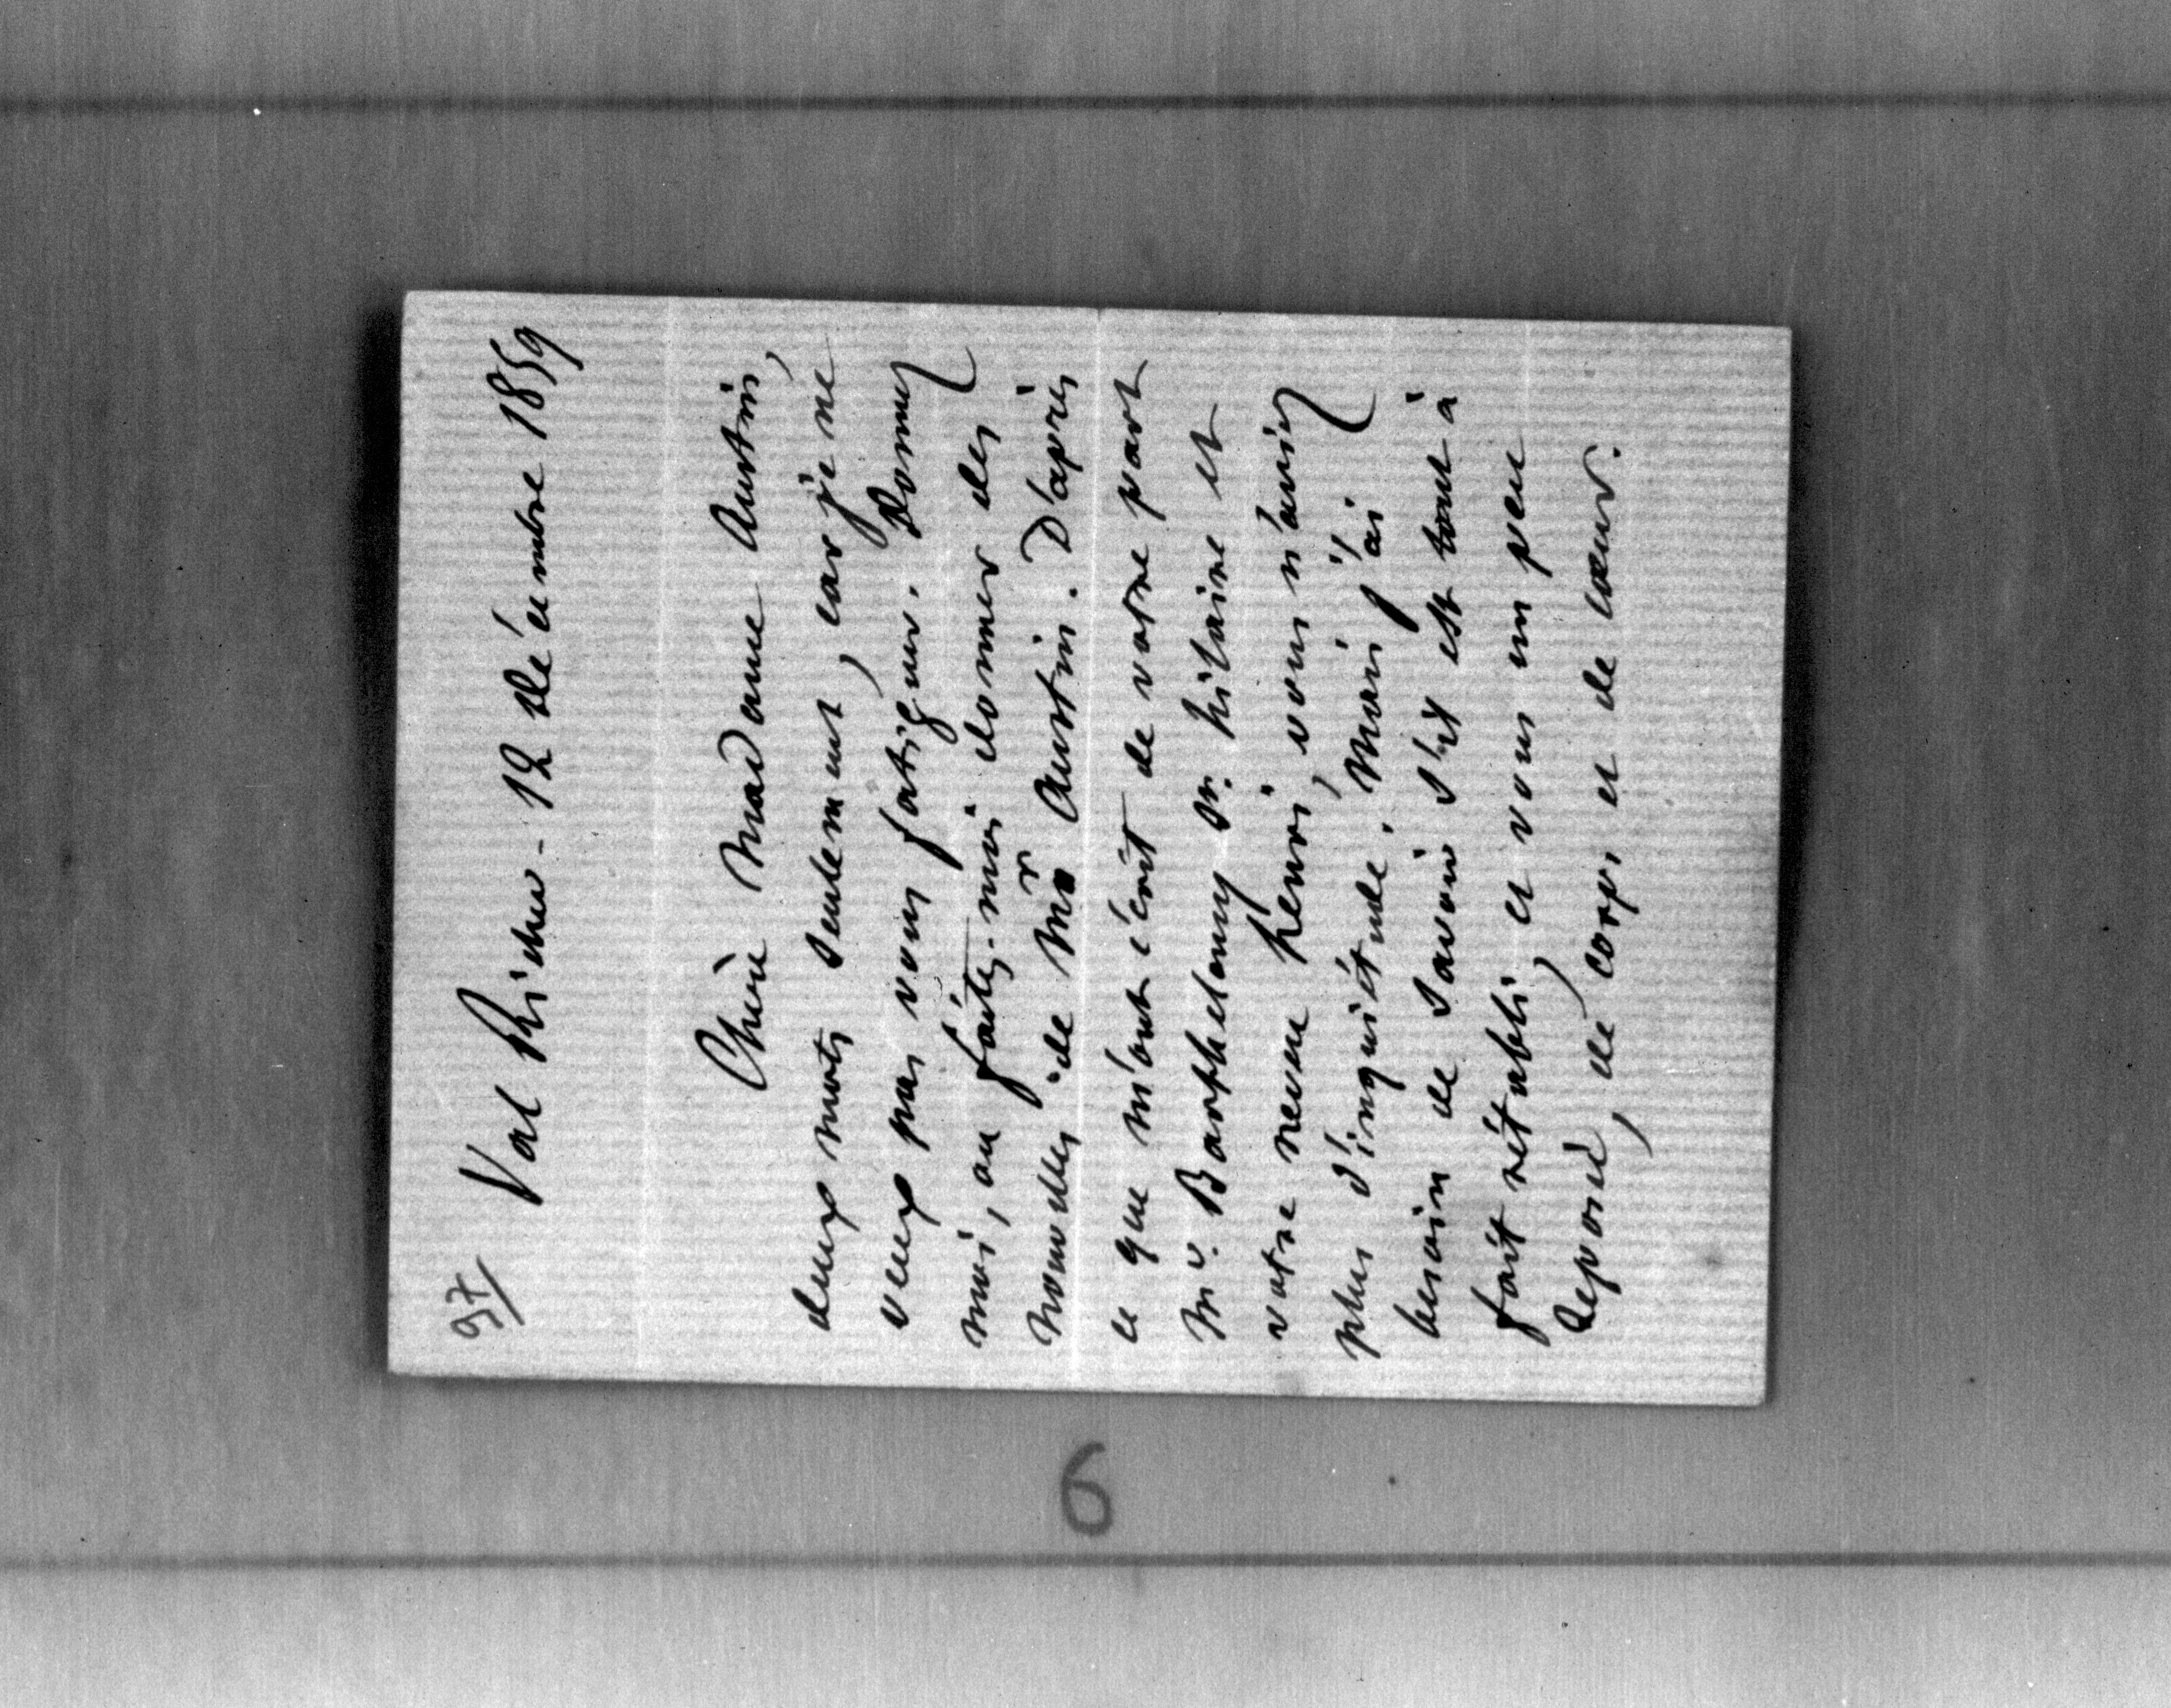 97/
Val Richer - 12 décembre 1859
Chère Madame Austin,
deux mots seulement, car je ne
veux pas vous fatiguer. Donnez
moi, ou faites-moi donner des
nouvelles de Mr Austin. D'après
ce que m'ont écrit de votre part
Mr. Barthelemy St. hilaire et
votre neveu henri, vous n'aviez
plus d'inquiétude. Mais j'ai
besoin de savoir s'il est tout à
fait rétabli, et vous un peu
reposée, de corps et de cœur.
6